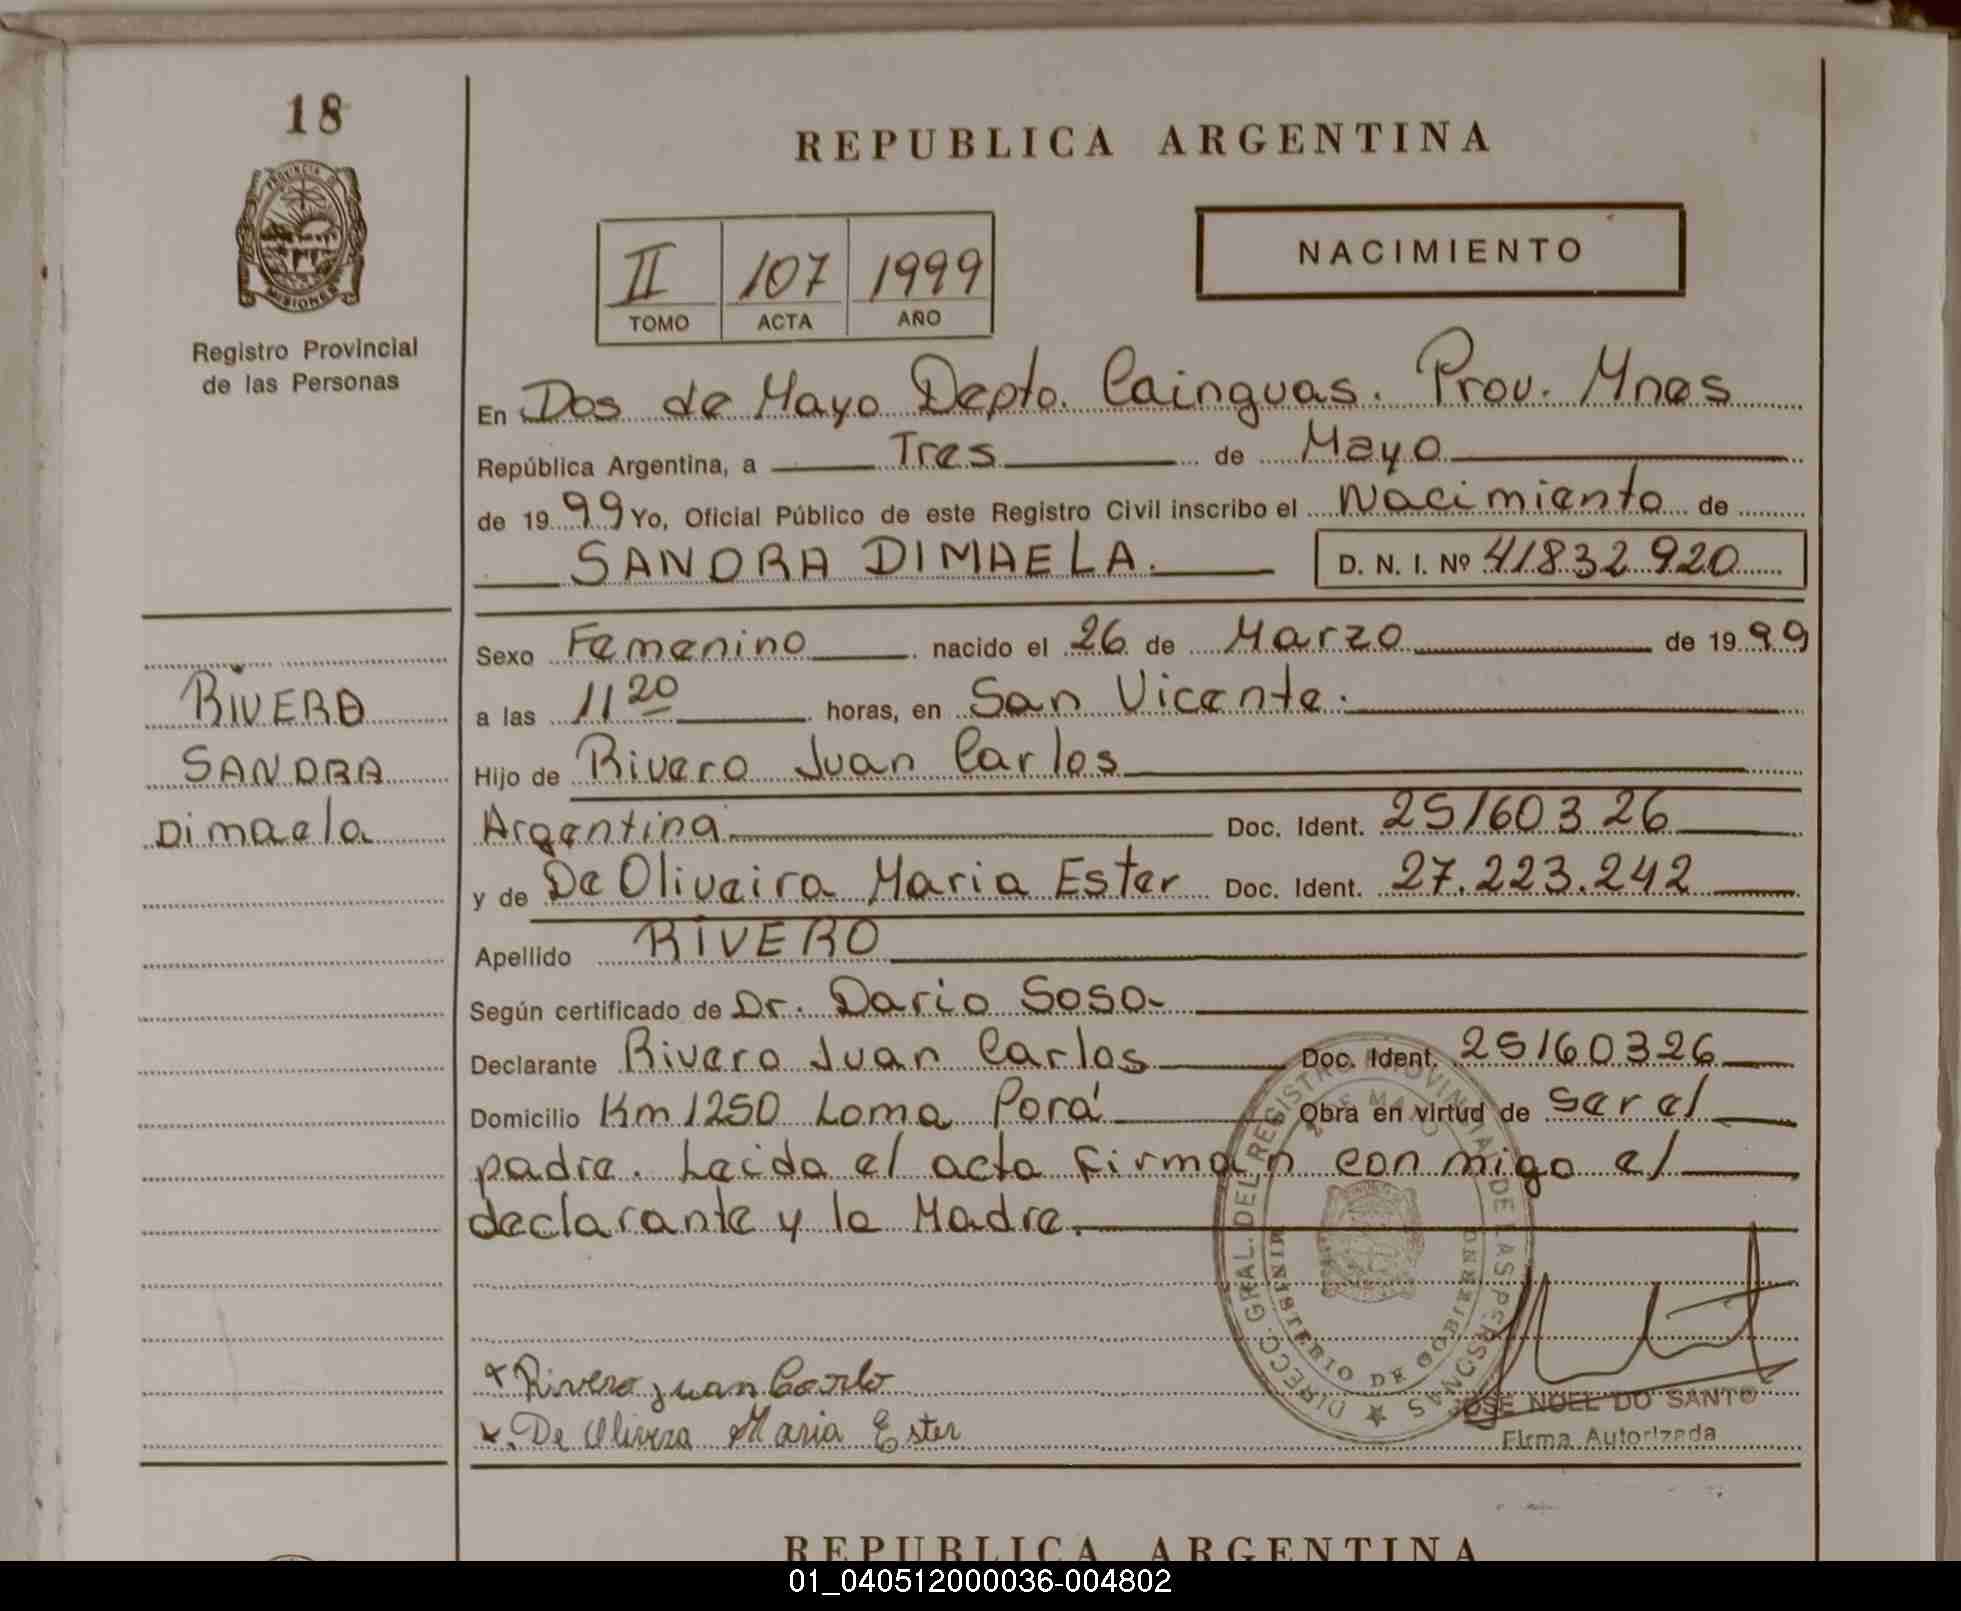 18
PROVINCIA D
MISIONES
Registro Provincial
de las Personas
REPUBLICA ARGENTINA
II 107 1999
TOMO ACTA AÑO
NACIMIENTO
En Dos de Mayo Depto. Cainguas. Prov. Mnes
República Argentina, a Tres de Mayo
de 1999 Yo, Oficial Público de este Registro Civil inscribo el Nacimiento de
SANDRA DIMAELA. D. N. I. Nº 41832920
Sexo Femenino nacido el 26 de Marzo de 1999
a las 11 20 horas, en San Vicente.
Hijo de Rivero Juan Carlos
Argentina Doc. Ident. 25160326
y de De Oliveira Maria Ester Doc. Ident. 27.223.242
Apellido RIVERO
Según certificado de Dr. Dario Sosa-
Declarante Rivero Juan Carlos Doc. Ident. 25160326
Domicilio Km 1250 Loma Porá Obra en virtud de ser el
padre. Leida el acta firman con migo el
declarante y la Madre.
RIVERO
SANDRA
Dimaela
DIRECC. GRAL. DEL REGISTRO PROVINCIAL DE LAS PERSONAS
2 DE MAYO
MINISTERIO DE GOBIERNO
Rivero Juan Carlo
De Olivera Maria Ester
JOSE NOEL DO SANTO
Firma Autorizada
REPUBLICA ARGENTINA
01_040512000036-004802